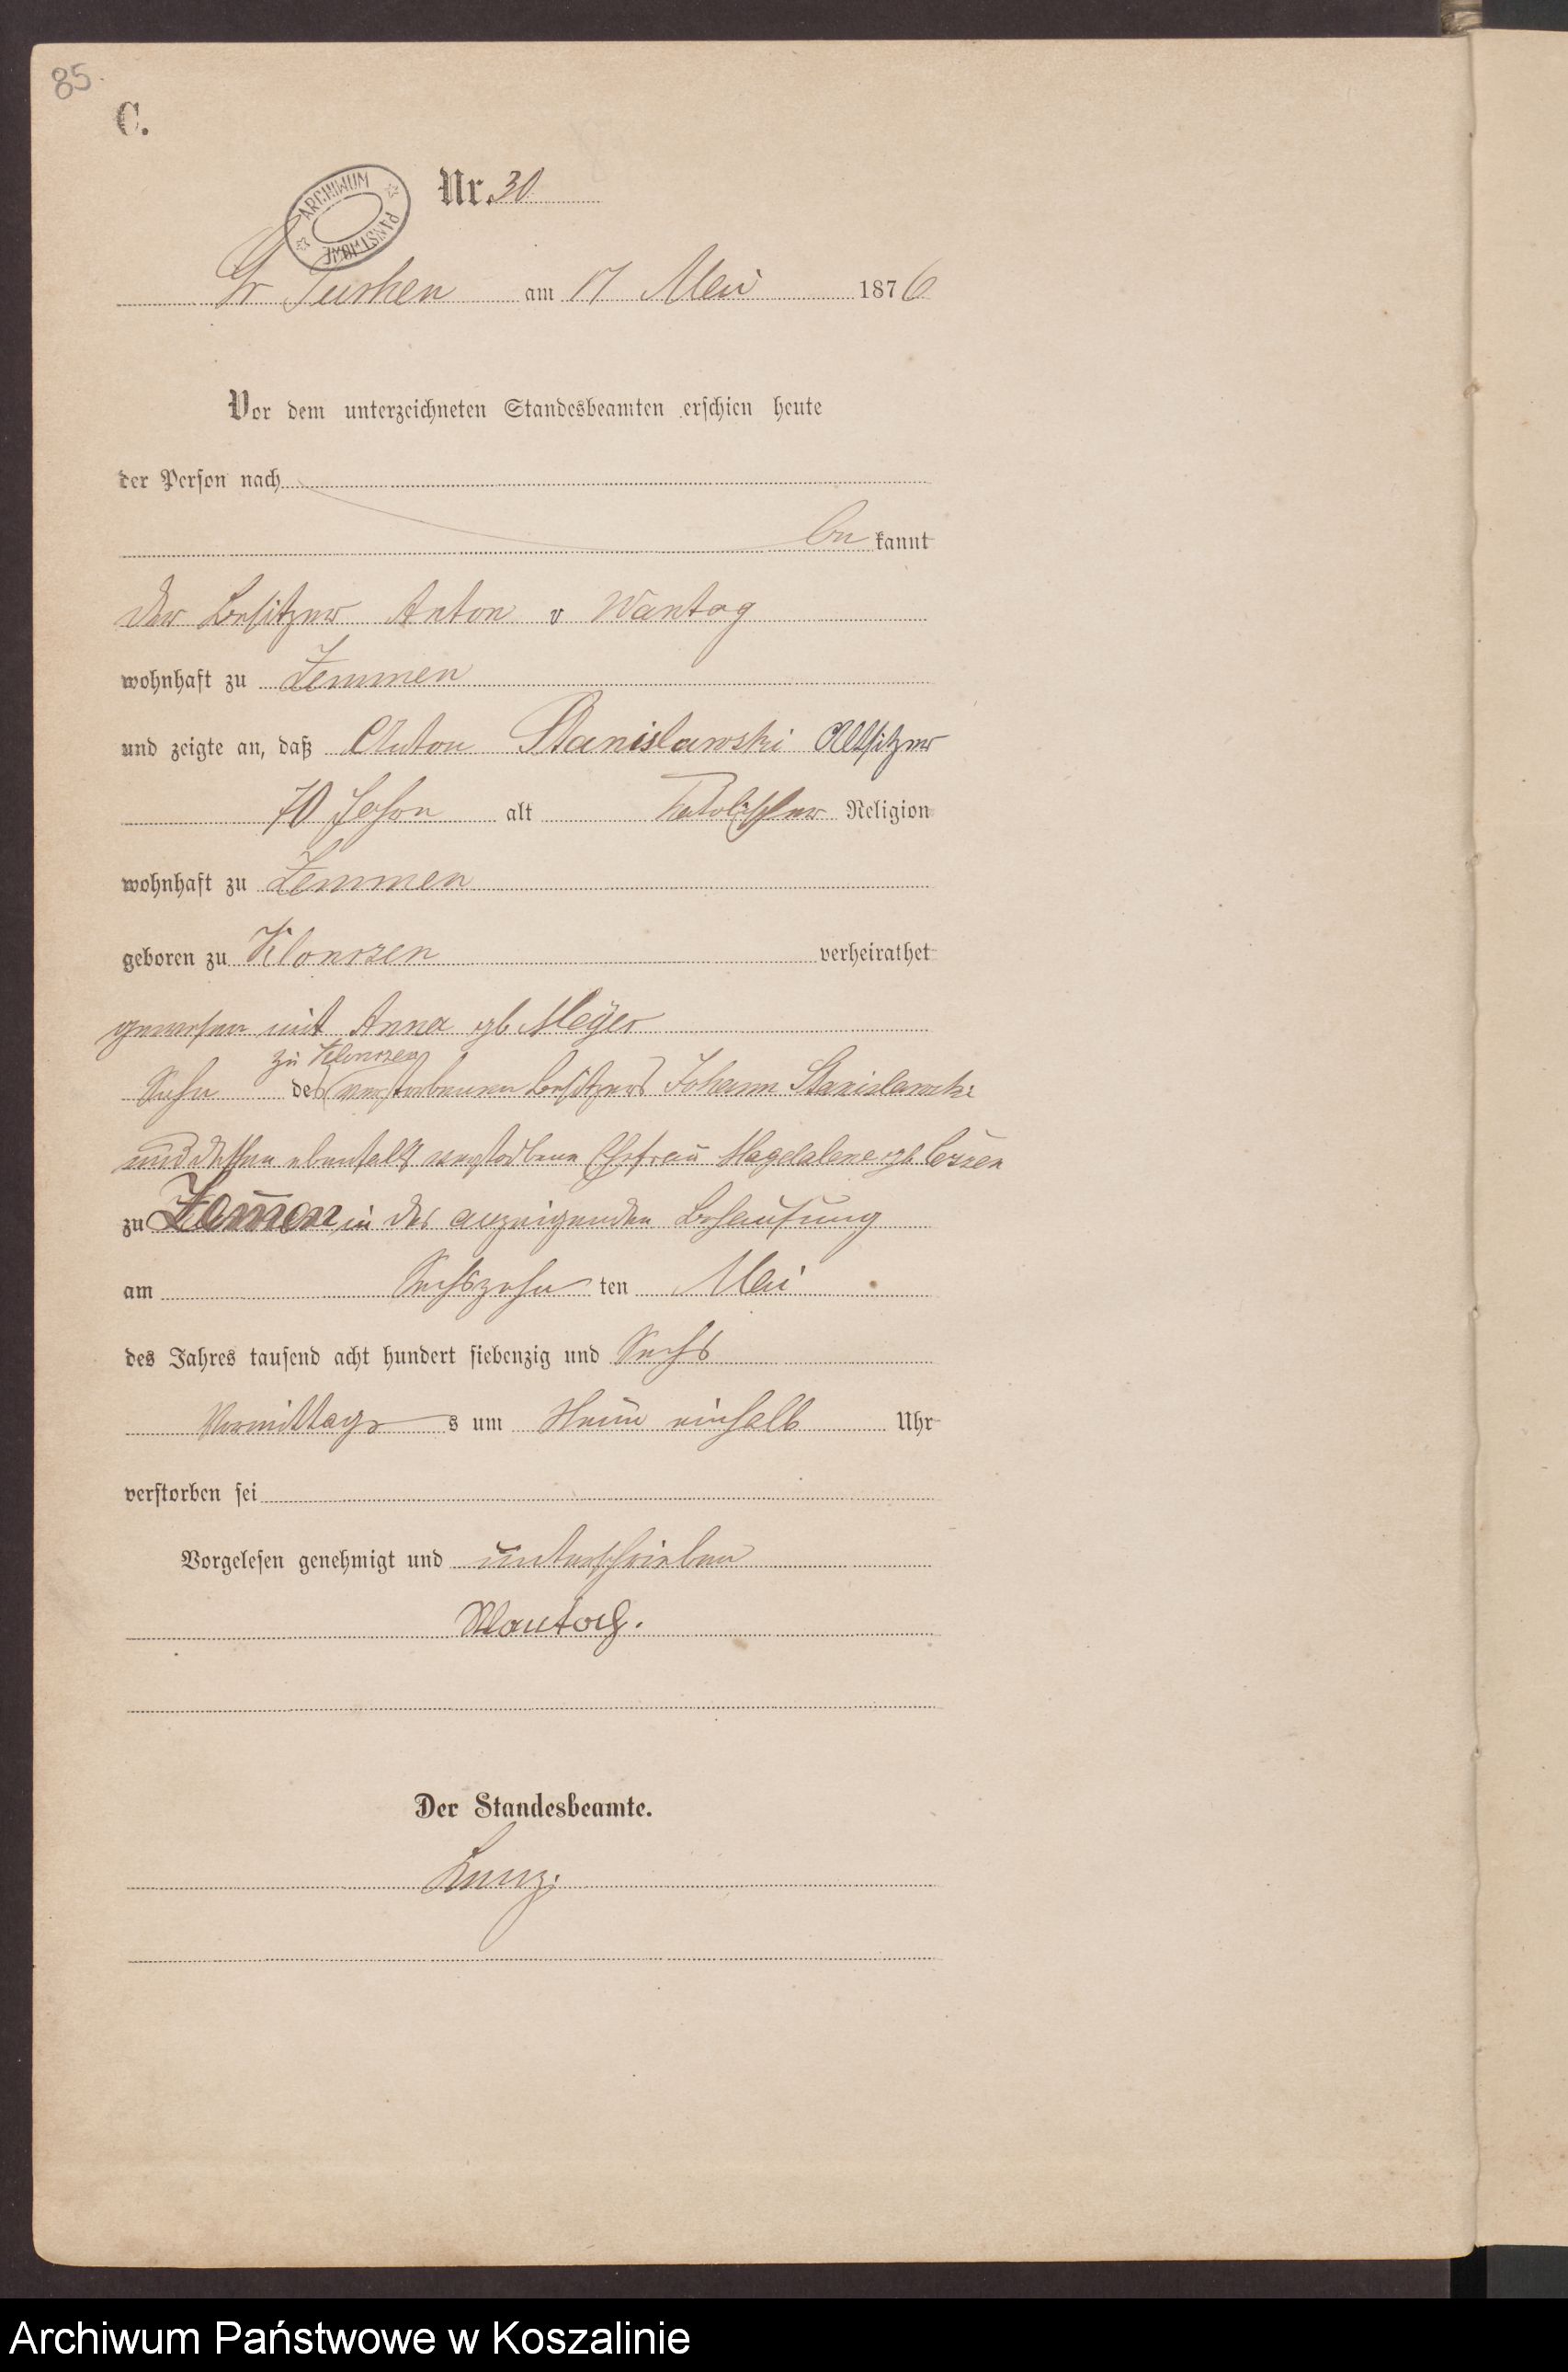 85.
C.
ARCHIWUM PAŃSTWOWE
Nr. 30
Gr Tuchen am 17 Mai 1876
Vor dem unterzeichneten Standesbeamten erschien heute
der Person nach
be kannt
der Besitzer Anton v Wantog
wohnhaft zu Zemmen
und zeigte an, daß Anton Stanislawski Altsitzer
70 Jahre alt katolischer Religion
wohnhaft zu Zemmen
geboren zu Klonszen verheirathet
gewesen mit Anna gb Meÿer
zu Klonszen
Sohn des verstorbenen Besitzers Johann Stanislawski
und dessen ebenfalls verstorbene Ehefrau Magdalene gb
zu Zemmen in der anzeigenden Behausung
am Sechszehn ten Mai
des Jahres tausend acht hundert siebenzig und Sechs
Vormittags s um Neun einhalb Uhr
verstorben sei
Vorgelesen genehmigt und unterschrieben
Wantoch.
Der Standesbeamte.
Archiwum Państwowe w Koszalinie